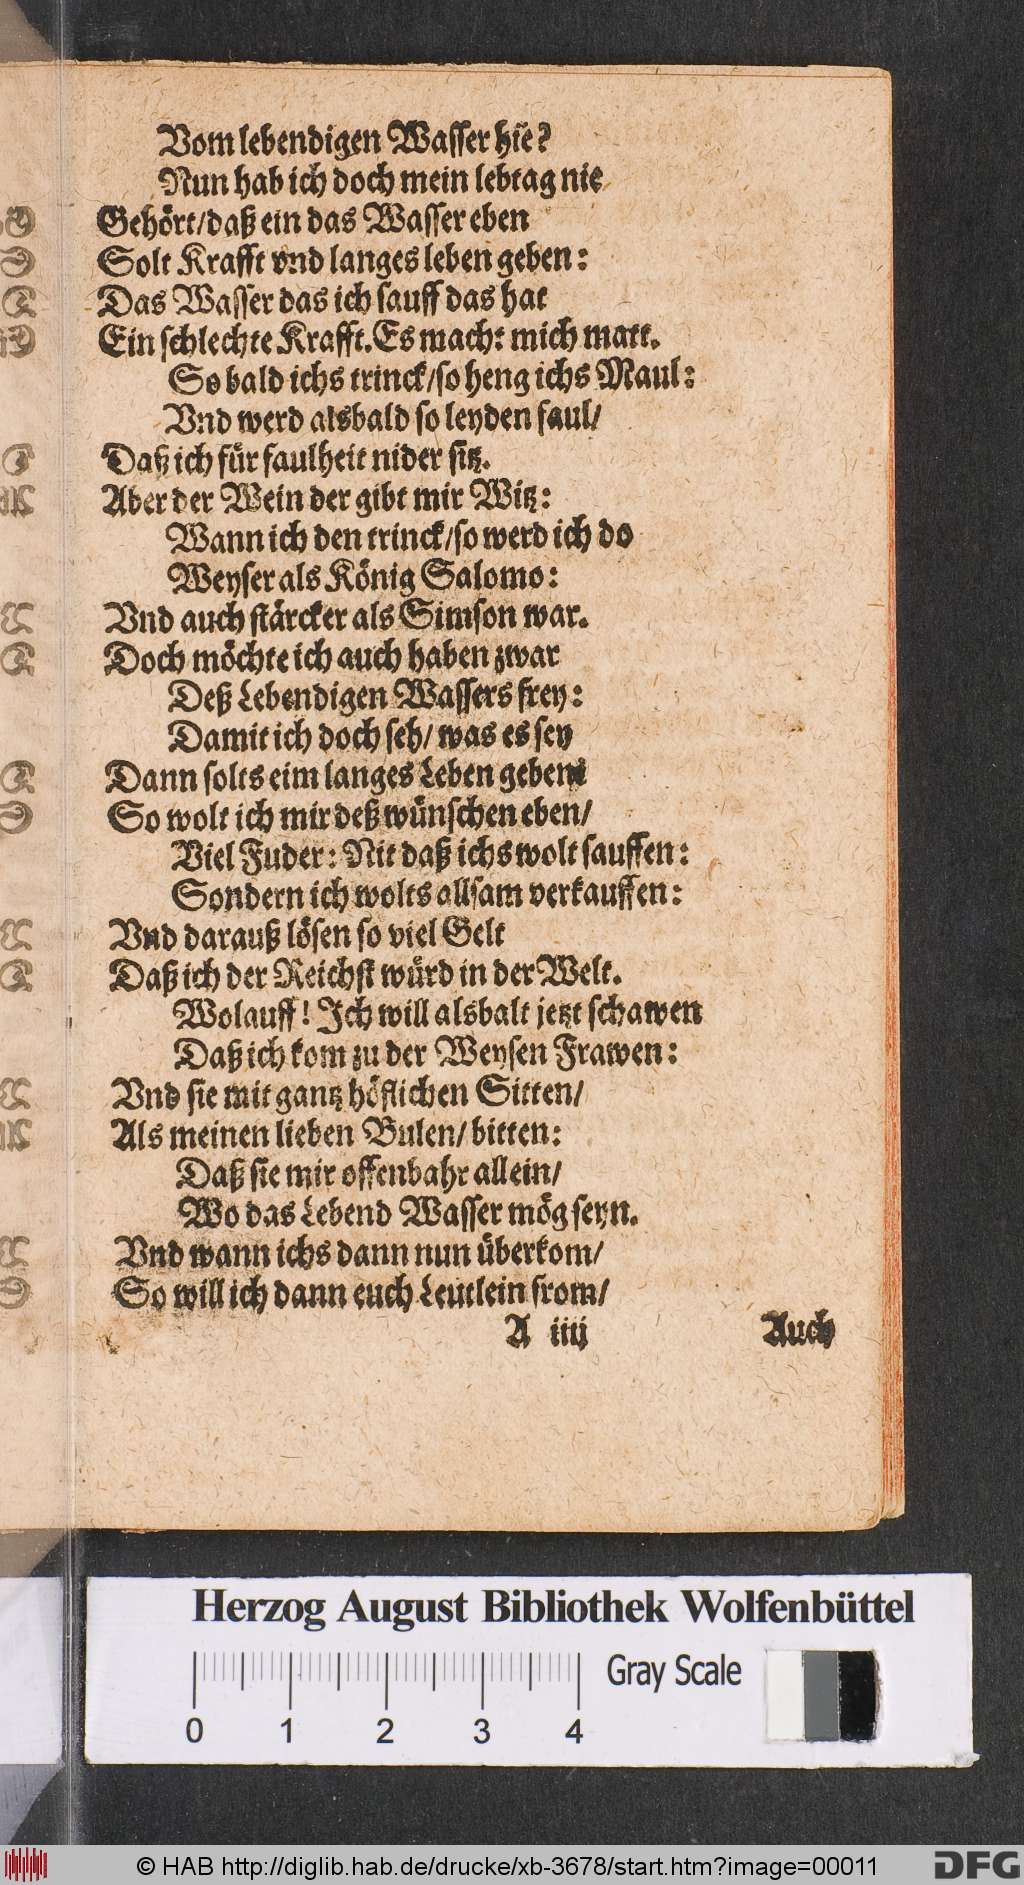 Vom lebendigen Wasser hie?
Nun hab ich doch mein lebtag nie
Gehört/daß ein das Wasser eben
Solt Krafft vnd langes leben geben:
Das Wasser das ich sauff das hat
Ein schlechte Krafft. Es macht mich matt.
So bald ichs trinck/so heng ichs Maul:
Vnd werd alsbald so leyden faul/
Daß ich für faulheit nider sitz.
Aber der Wein der gibt mir Witz:
Wann ich den trinck/so werd ich do
Weyser als König Salomo:
Vnd auch stärcker als Simson war.
Doch möchte ich auch haben zwar
Deß Lebendigen Wassers frey:
Damit ich doch seh/ was es sey
Dann solts eim langes Leben geben
So wolt ich mir deß wünschen eben/
Viel Fuder: Nit daß ichs wolt sauffen:
Sondern ich wolts allsam verkauffen:
Vnd darauß lösen so viel Gelt
Daß ich der Reichst würd in der Welt.
Wolauff! Ich will alsbalt jetzt schawen
Daß ich kom zu der Weysen Frawen:
Vnd sie mit gantz höflichen Sitten/
Als meinen lieben Bulen/ bitten:
Daß sie mir offenbahr allein/
Wo das Lebend Wasser mög seyn.
Vnd wann ichs dann nun überkom/
So will ich dann euch Leutlein from/
A iiij Auch
Herzog August Bibliothek Wolfenbüttel
Gray Scale
0 1 2 3 4
© HAB http://diglib.hab.de/drucke/xb-3678/start.htm?image=00011
DFG